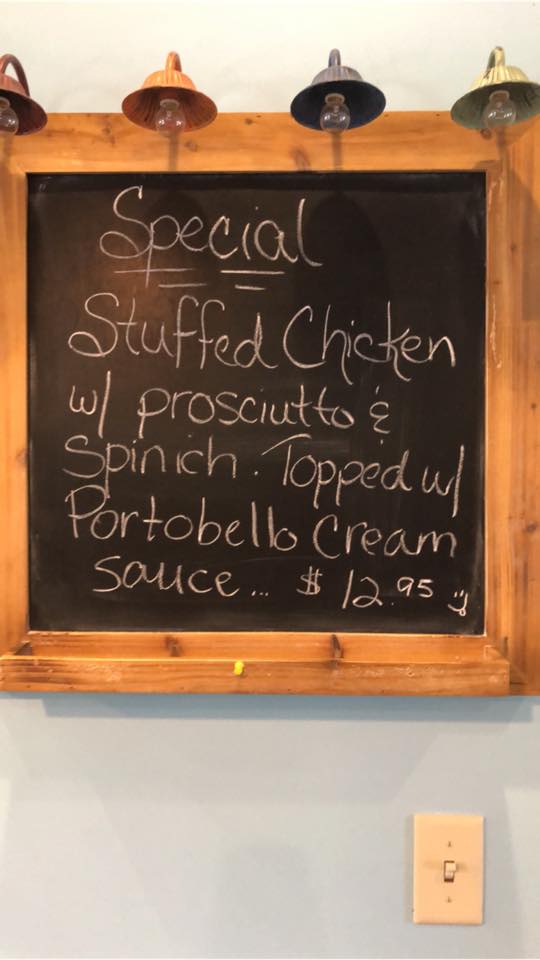 Special
Stuffed Chicken
w/ prosciutto &
Spinich. Topped w/
Portobello Cream
sauce... $12.95 :)